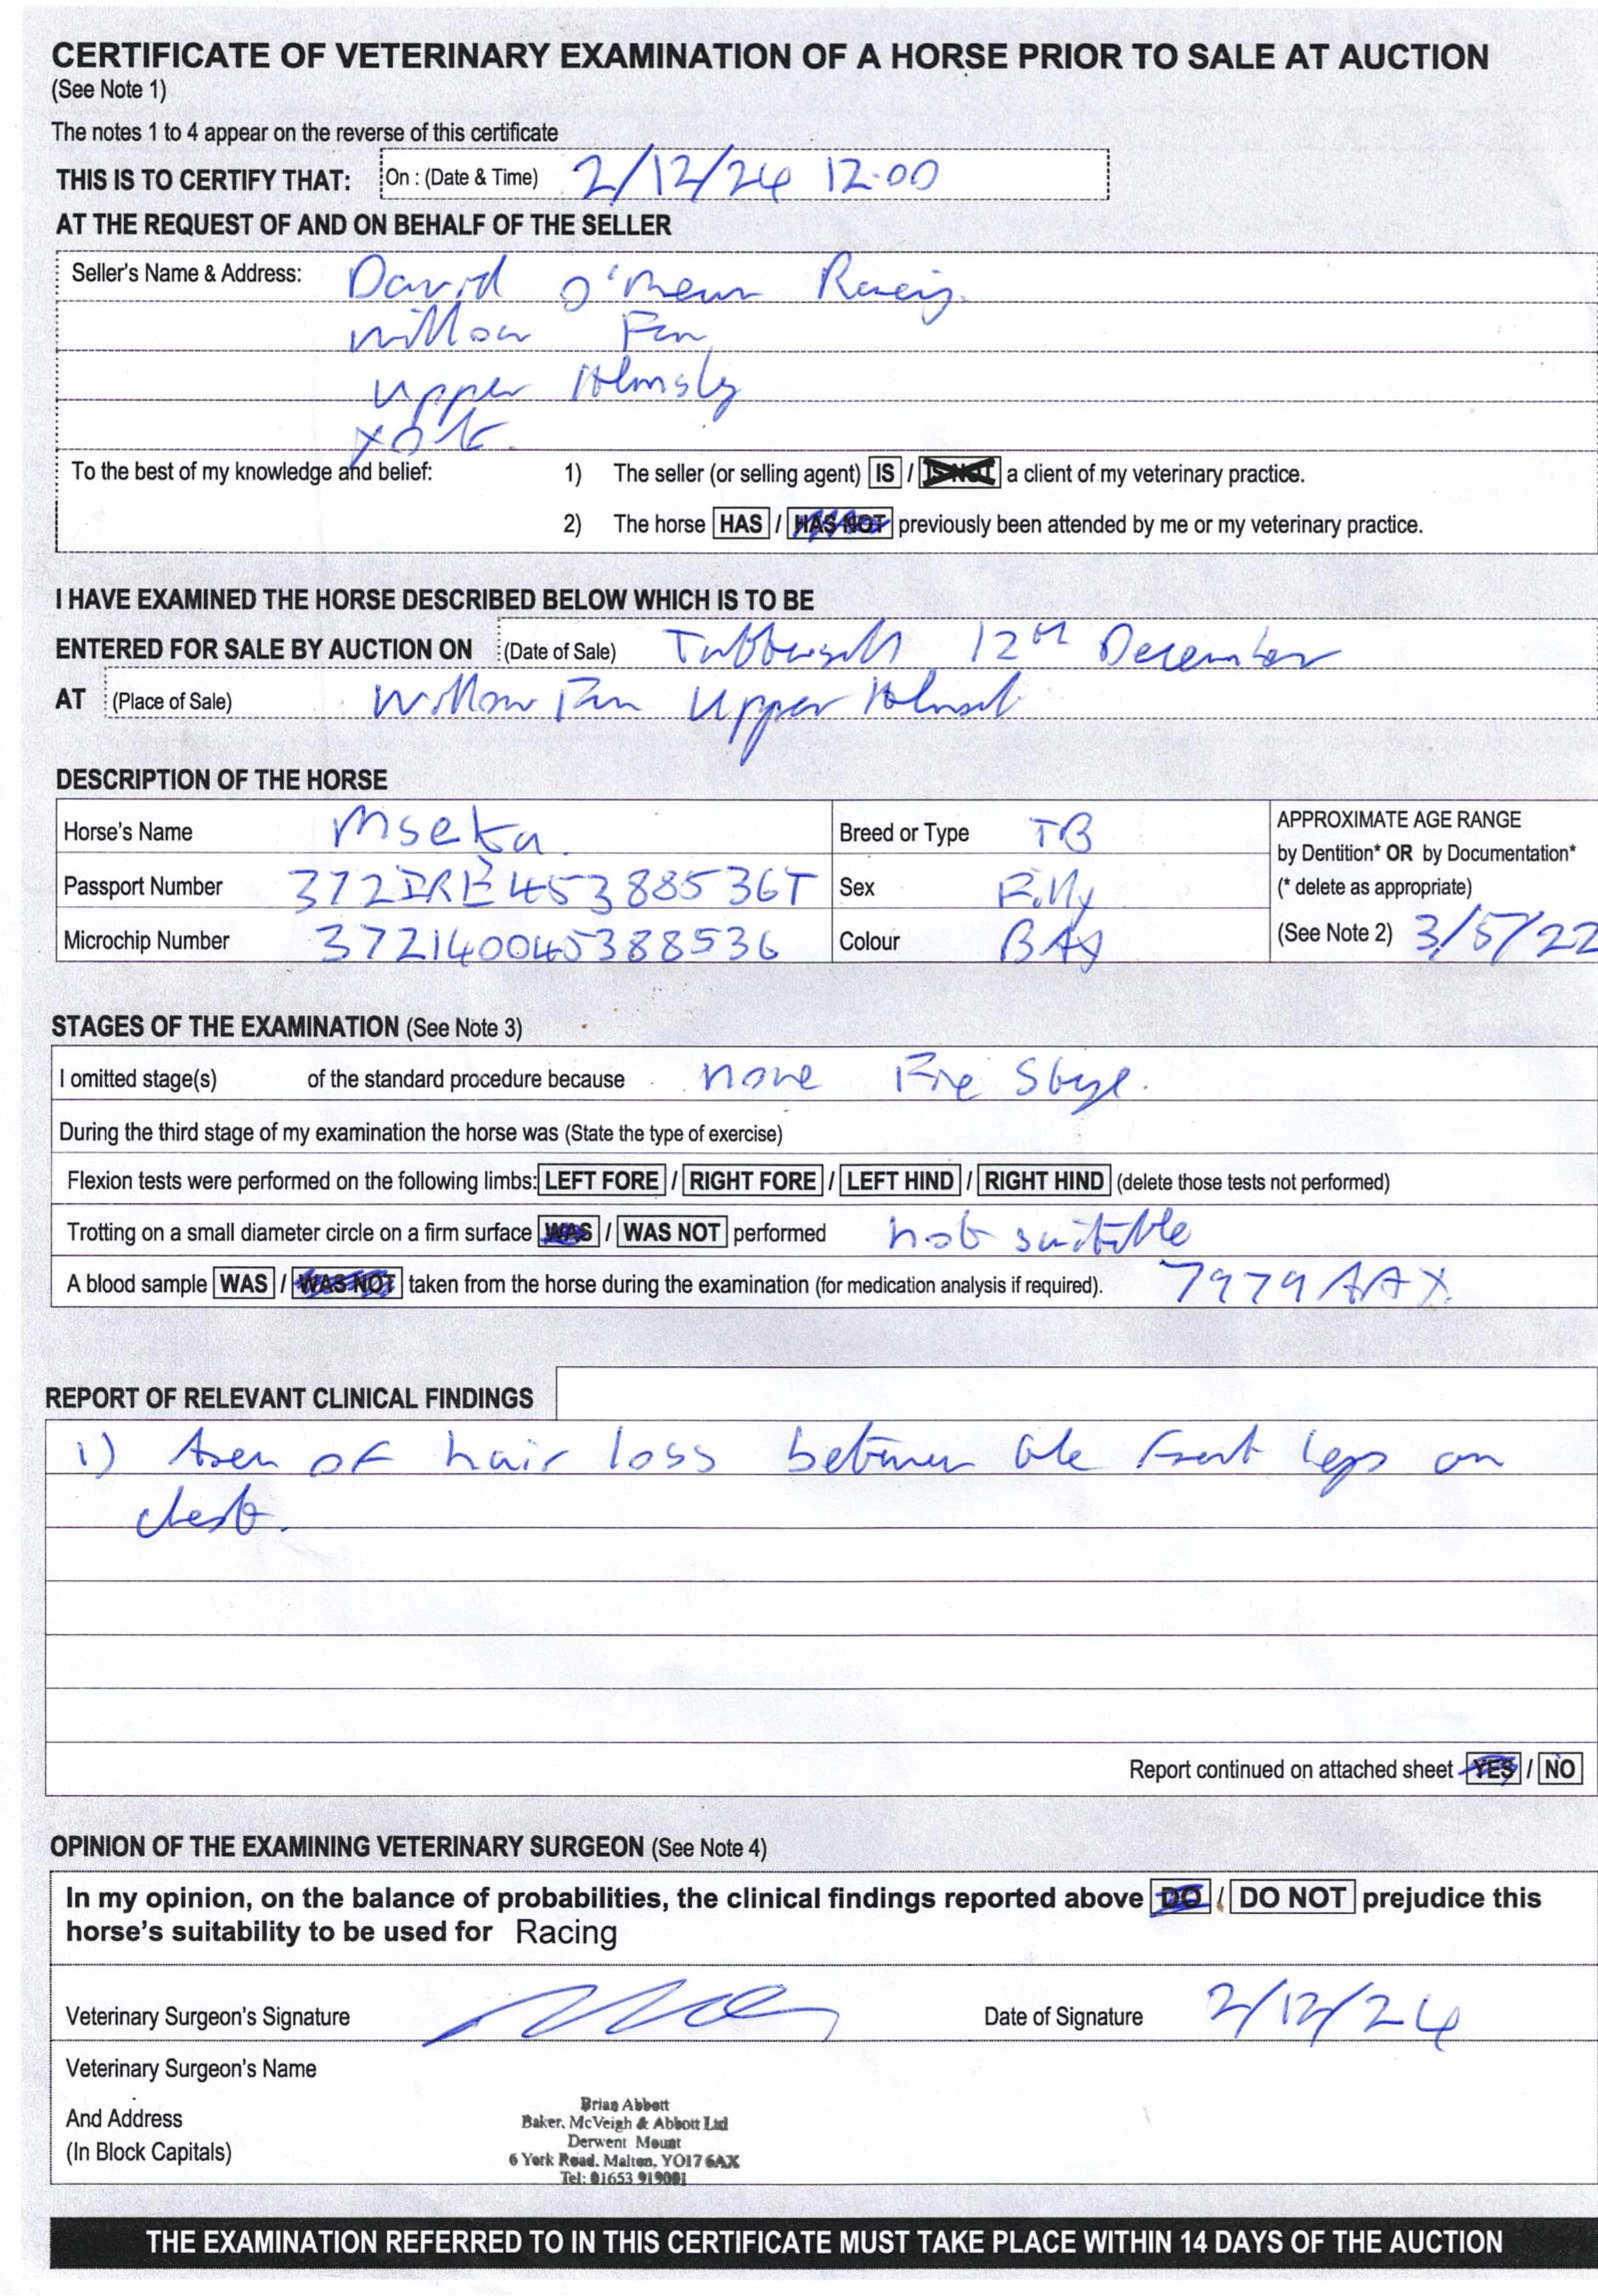 CERTIFICATE OF VETERINARY EXAMINATION OF A HORSE PRIOR TO SALE AT AUCTION
(See Note 1)
The notes 1 to 4 appear on the reverse of this certificate
THIS IS TO CERTIFY THAT: On : (Date & Time) 2/12/24 12.00
AT THE REQUEST OF AND ON BEHALF OF THE SELLER
Seller's Name & Address: David O'Meara Racing.
Willow Farm
Upper Helmsley
York.
To the best of my knowledge and belief: 1) The seller (or selling agent) IS / IS NOT a client of my veterinary practice.
2) The horse HAS / HAS NOT previously been attended by me or my veterinary practice.
I HAVE EXAMINED THE HORSE DESCRIBED BELOW WHICH IS TO BE
ENTERED FOR SALE BY AUCTION ON (Date of Sale) Tattersalls 12th December
AT (Place of Sale) Willow Farm Upper
DESCRIPTION OF THE HORSE
Horse's Name Mseka. Breed or Type TB APPROXIMATE AGE RANGE
by Dentition* OR by Documentation*
Passport Number 372IRE45388536T Sex Filly (* delete as appropriate)
Microchip Number 372140045388536 Colour BAY (See Note 2) 3/5/22
STAGES OF THE EXAMINATION (See Note 3)
I omitted stage(s) of the standard procedure because none Five Stage.
During the third stage of my examination the horse was (State the type of exercise)
Flexion tests were performed on the following limbs: LEFT FORE / RIGHT FORE / LEFT HIND / RIGHT HIND (delete those tests not performed)
Trotting on a small diameter circle on a firm surface WAS / WAS NOT performed not suitable
A blood sample WAS / WAS NOT taken from the horse during the examination (for medication analysis if required). 7979AAX
REPORT OF RELEVANT CLINICAL FINDINGS
1) Area of hair loss between the front legs on
chest.
Report continued on attached sheet YES / NO
OPINION OF THE EXAMINING VETERINARY SURGEON (See Note 4)
In my opinion, on the balance of probabilities, the clinical findings reported above DO / DO NOT prejudice this
horse's suitability to be used for Racing
Veterinary Surgeon's Signature Date of Signature 2/12/24
Veterinary Surgeon's Name
And Address
(In Block Capitals)
Brian Abbott
Baker, McVeigh & Abbott Ltd
Derwent Mount
6 York Road, Malton, YO17 6AX
Tel: 01653 919001
THE EXAMINATION REFERRED TO IN THIS CERTIFICATE MUST TAKE PLACE WITHIN 14 DAYS OF THE AUCTION